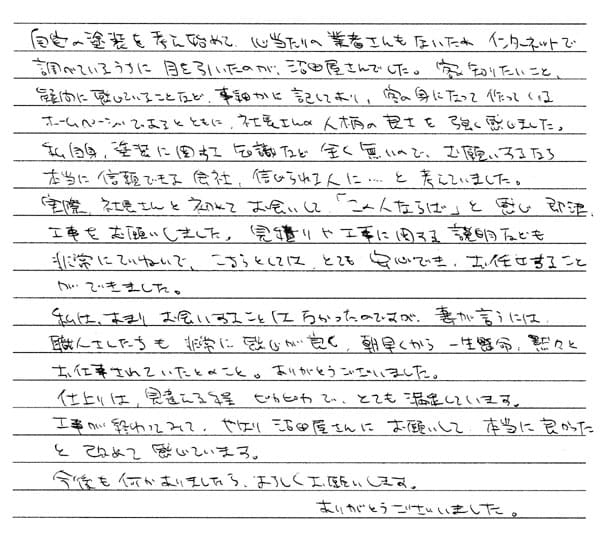 自宅の塗装を考え始めて、心当たりの業者さんもないため インターネットで
調べているうちに 目を引いたのが、沼田屋さんでした。 客が知りたいこと、
疑問に感じていることなど、事細かに 記しており、客の身になって 作っている
ホームページであるとともに、社長さんの 人柄の良さを 強く感じました。
私自身、塗装に関する 知識など 全く無いので、お願いするなら
本当に 信頼できる 会社、信じられる人に‥‥と 考えていました。
実際、社長さんと 初めて お会いして、「この人ならば」と 感じ 即決、
工事を お願いしました。 見積りや工事に関する 説明なども
非常に ていねいで、こちらとしては、とても 安心でき、お任せすること
が できました。
私は、あまり お会いすることは なかったのですが、妻が言うには、
職人さんたちも 非常に 感じが良く、朝早くから 一生懸命、黙々と
お仕事されていたとのこと。ありがとうございました。
仕上りは、見違える程 ピカピカで、とても 満足しています。
工事が 終わってみて、やはり 沼田屋さんに お願いして 本当に 良かった
と 改めて 感じています。
今後も 何かありましたら、よろしくお願いします。
ありがとうございました。